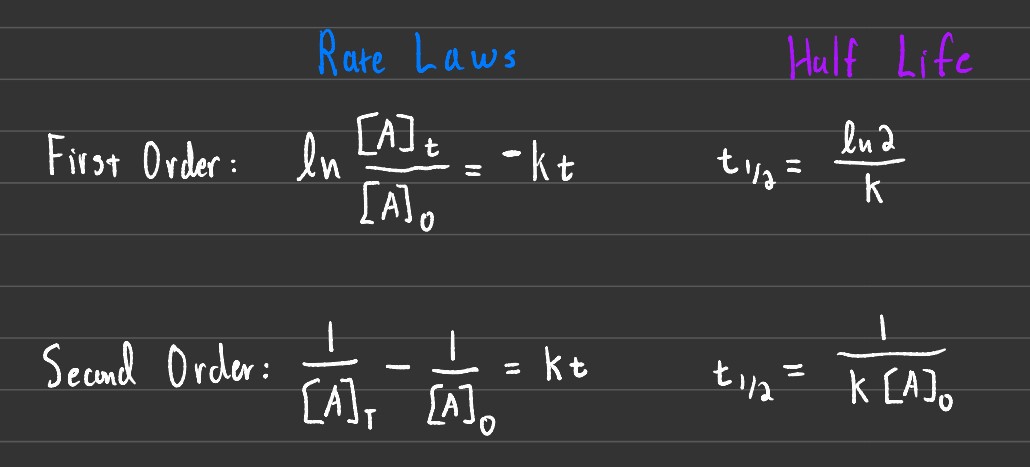 Rate Laws Half Life
First Order: ln [A]t/[A]0 = -kt t1/2 = ln2/k
Second Order: 1/[A]T - 1/[A]0 = kt t1/2 = 1/k[A]0